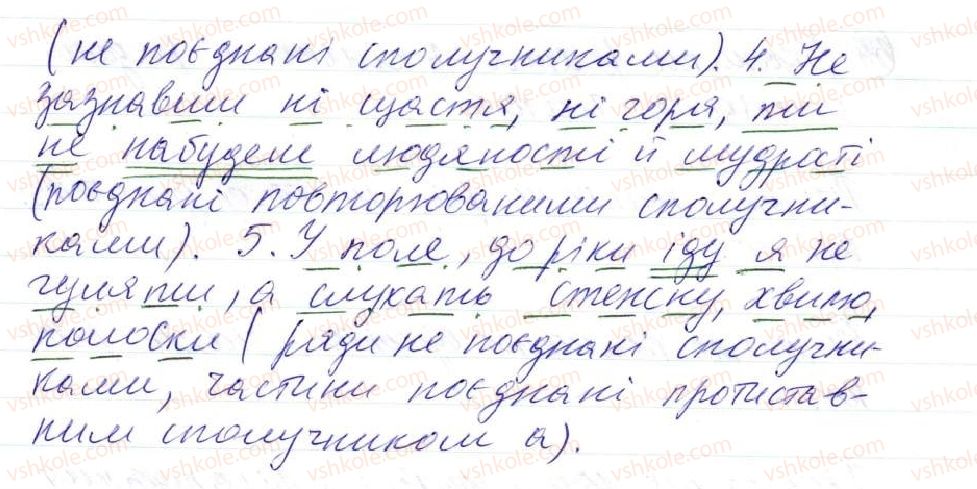 (не поєднані сполучниками). 4. Не
зазнавши ні щастя, ні горя, ти
не набудеш людяності й мудраті
(поєднані повторюваними сполучни-
ками). 5. У поле, до ріки іду я не
гуляти, а слухать стежку, хвилю,
полоски (ряди не поєднані сполучни-
ками, частини поєднані протистав-
ним сполучником а).